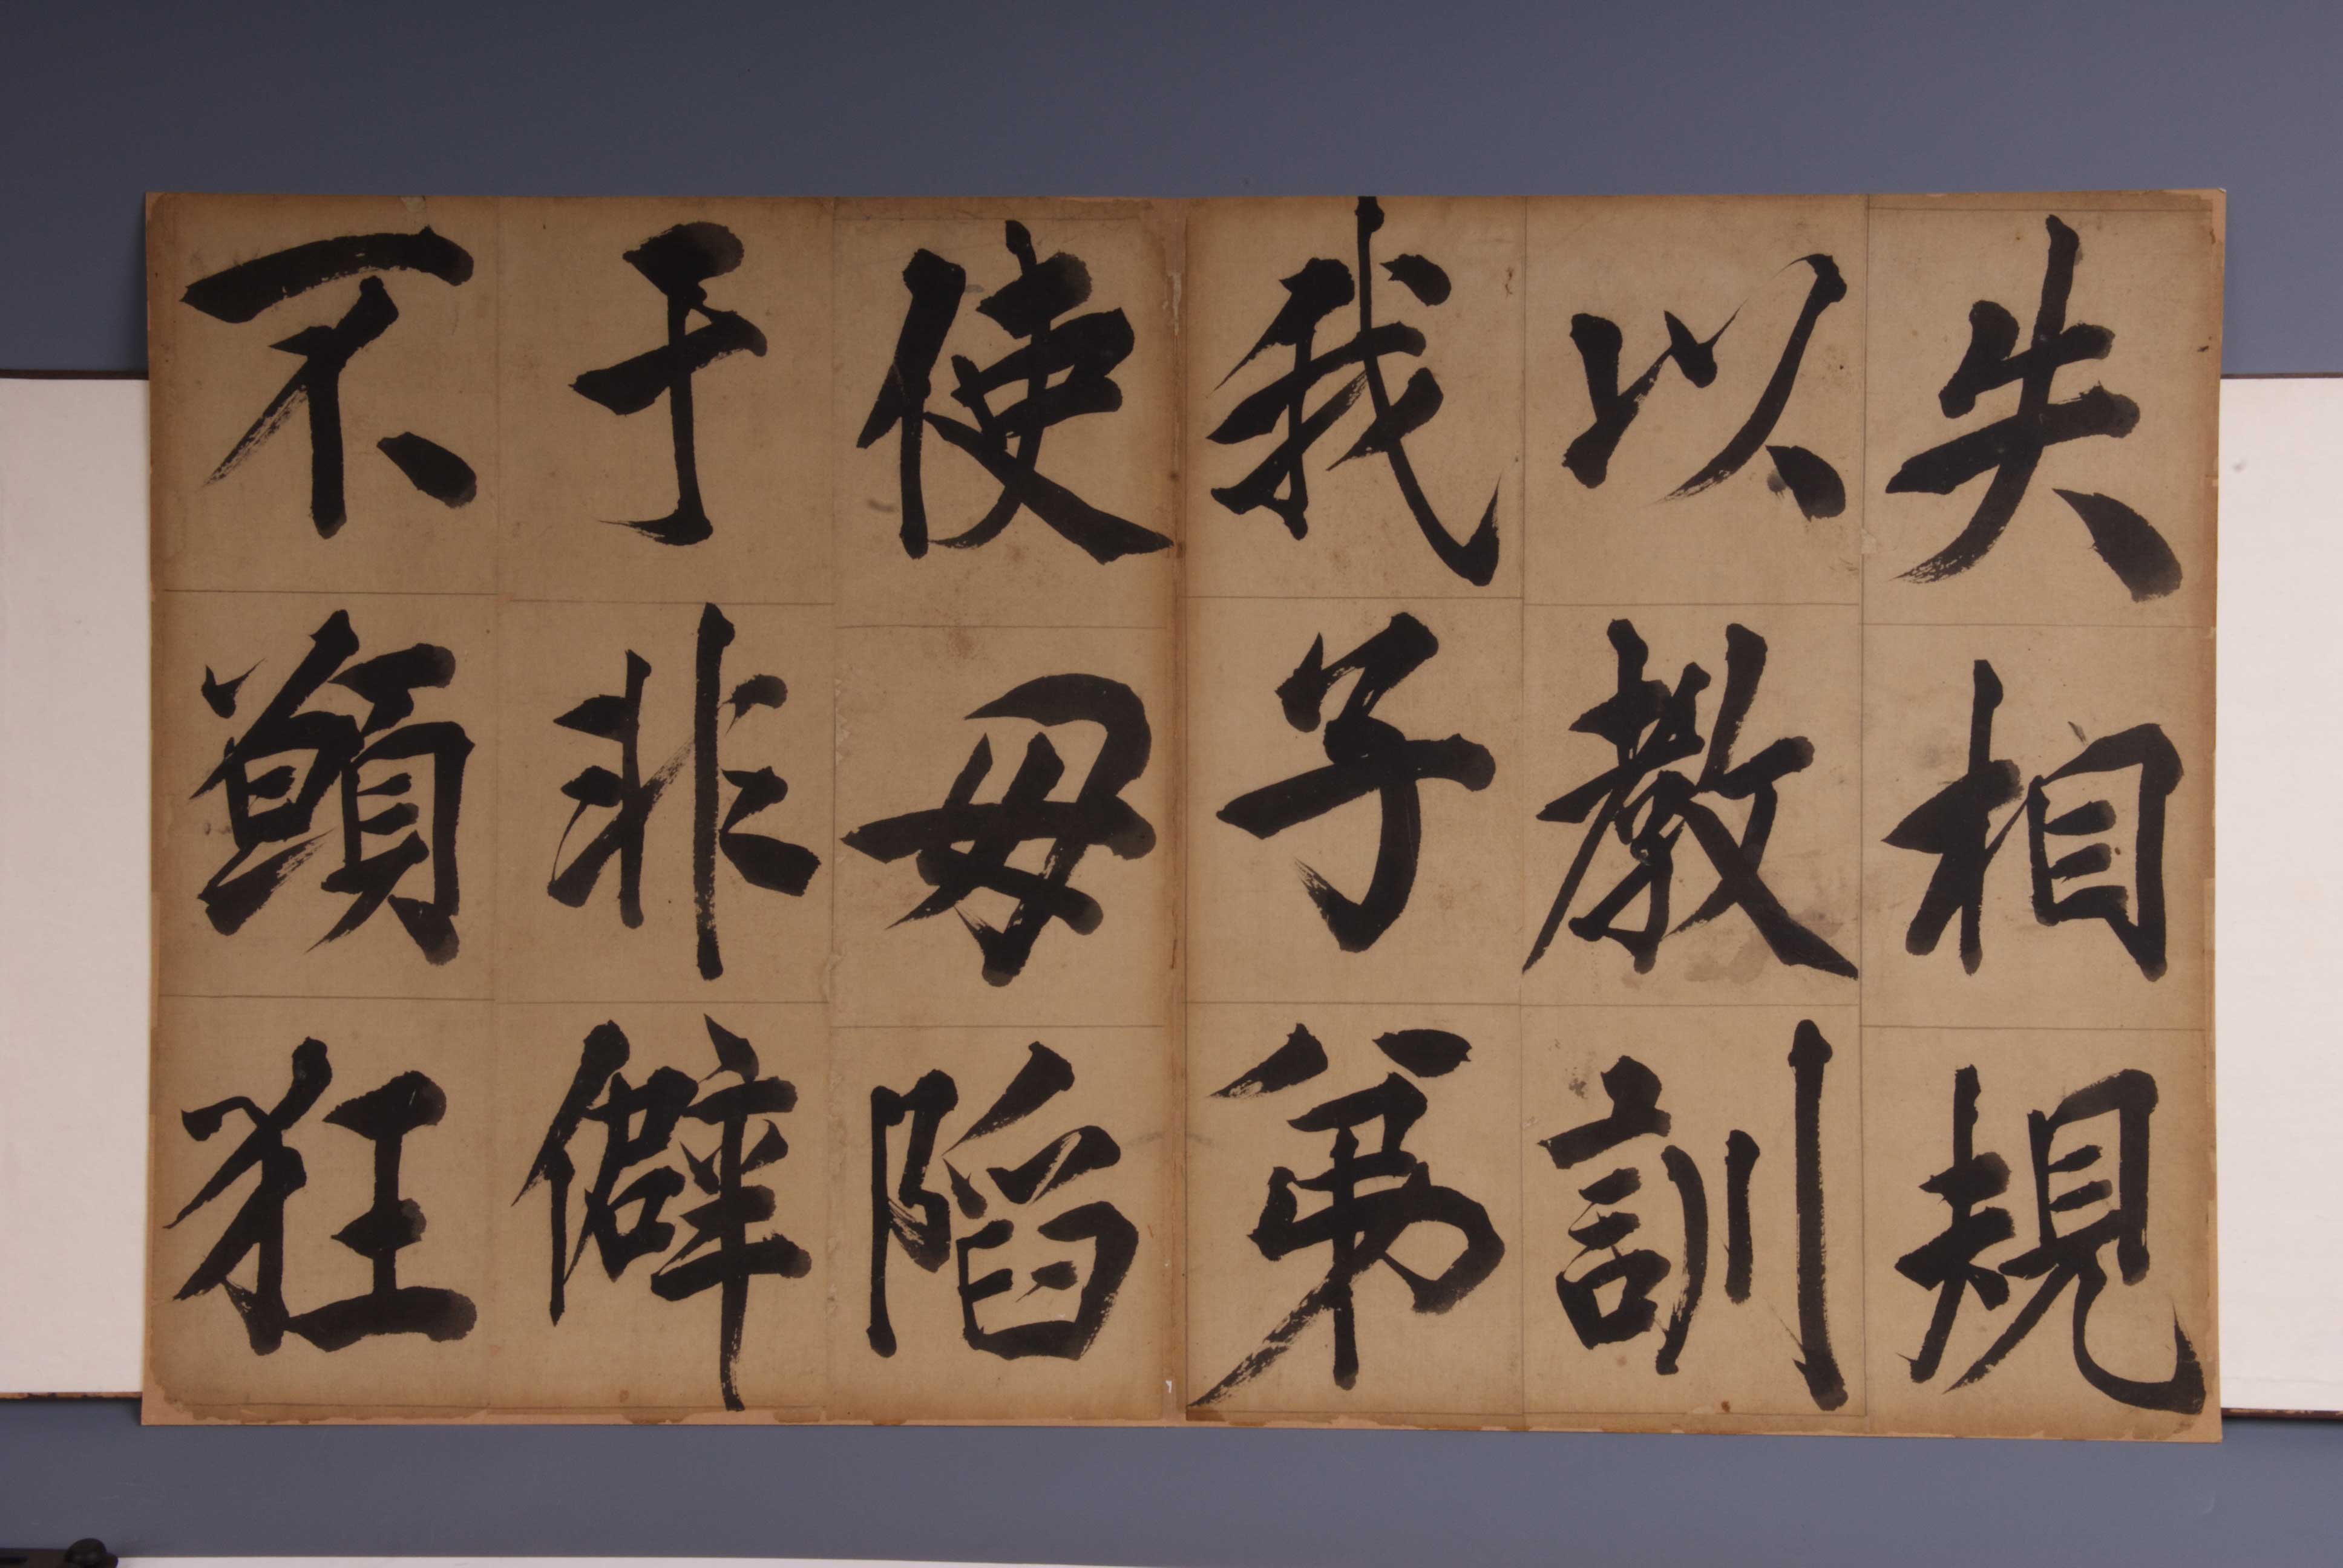 失相規
以教訓
我子弟
使毋陷
于非僻
不顛狂